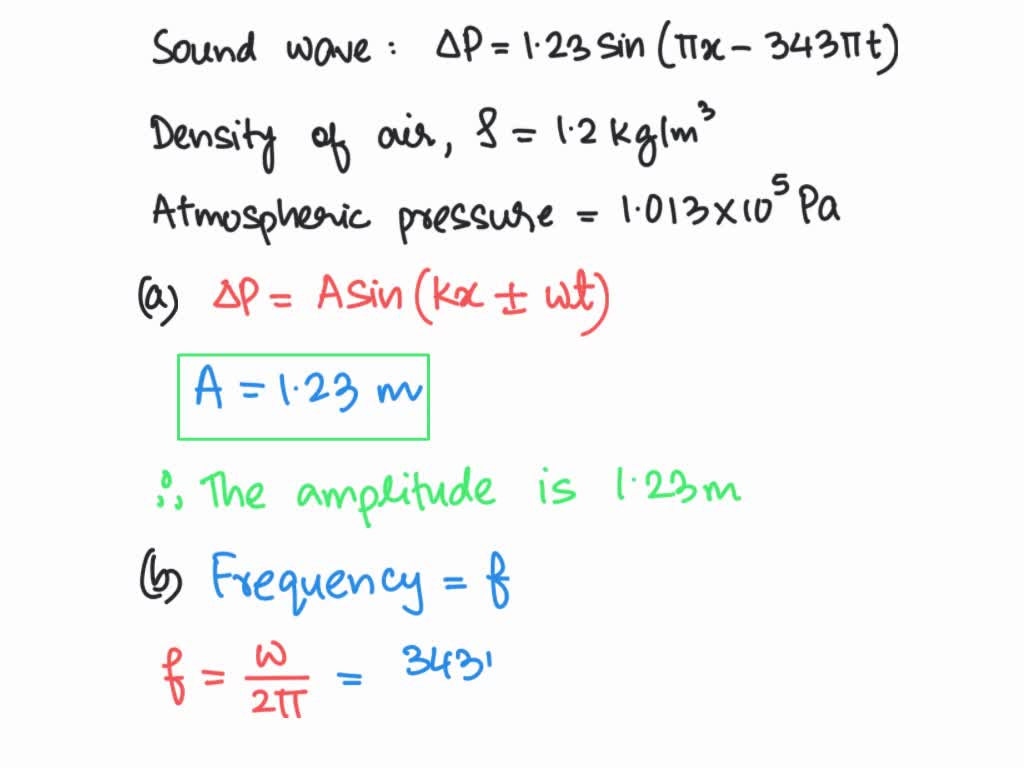 Sound wave: ΔP = 1.23 sin (πx - 343πt)
Density of air, ρ = 1.2 kg/m³
Atmospheric pressure = 1.013×10⁵ Pa
(a) ΔP = A sin (kx ± ωt)
A = 1.23 m
∴ The amplitude is 1.23 m
(b) Frequency = f
f = ω/2π = 343